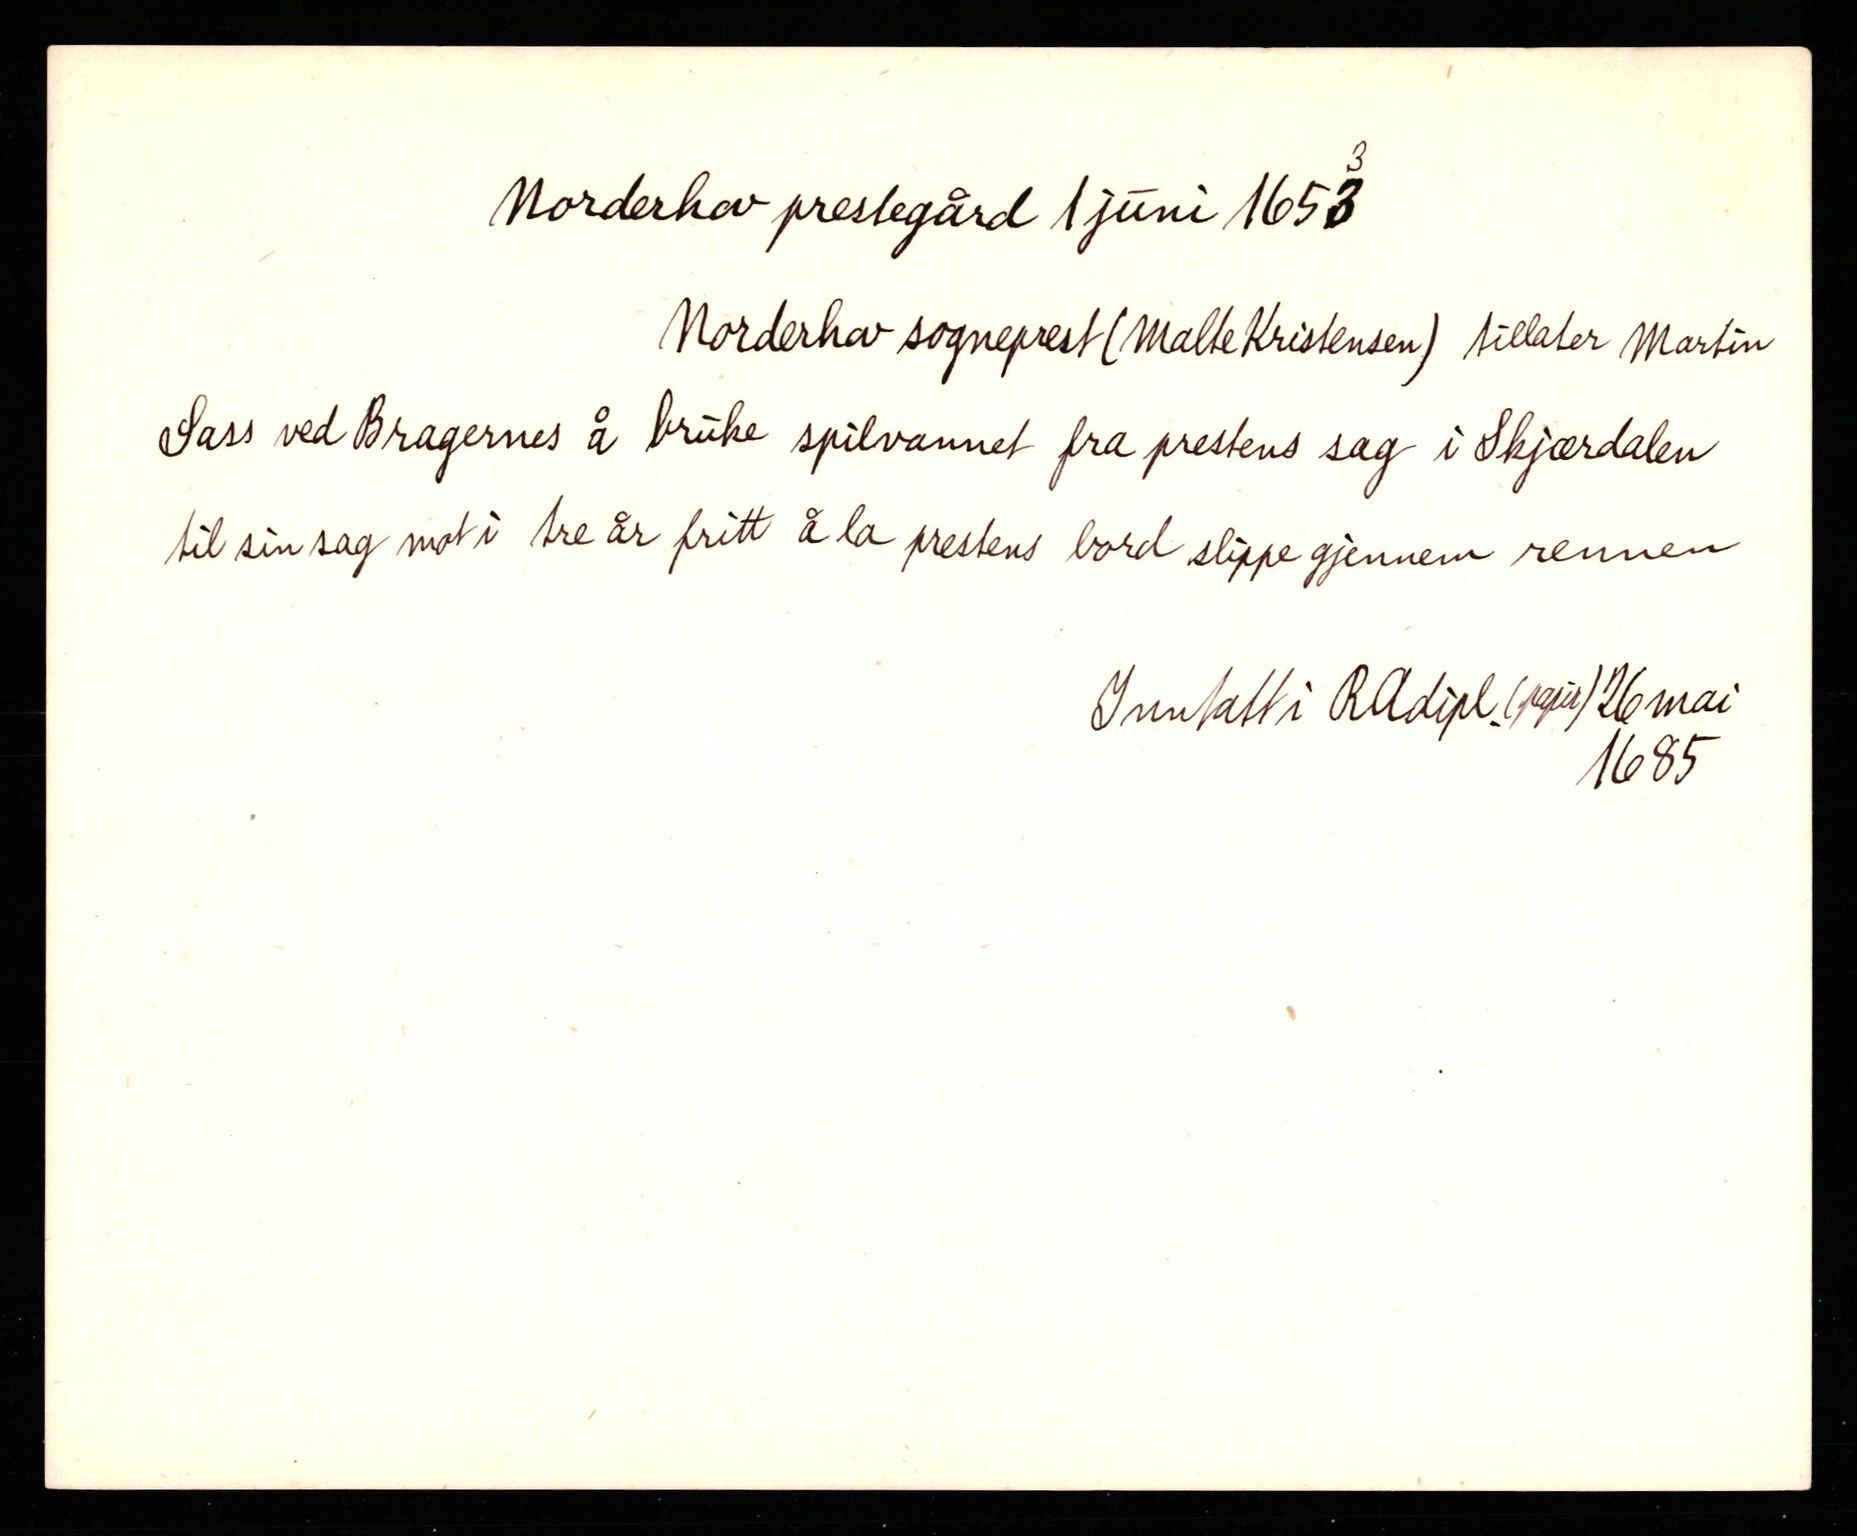 Norderhov prestegård 1 juni 1653 3
Norderhov sogneprest (Malte Kristensen) tillater Martin
Sass ved Bragernes å bruke spilvannet fra prestens sag i Skjærdalen
til sin sag mot i tre år fritt å la prestens bord slippe gjennem rennen
Inntatt i RA dipl. (papir) 26 mai
1685